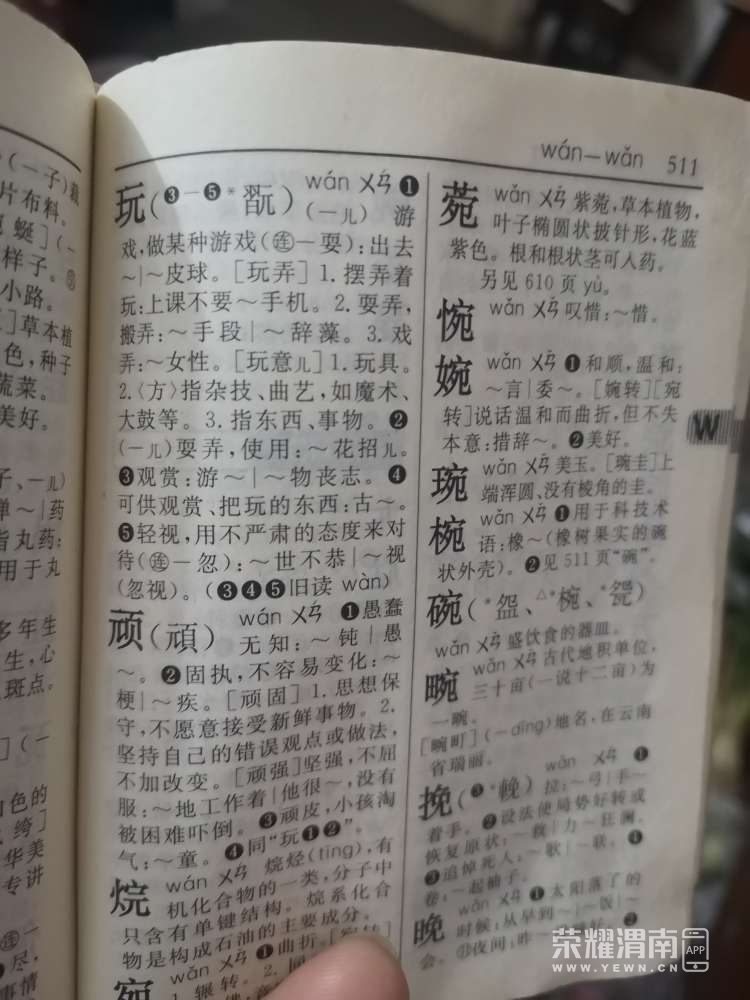 wán—wǎn 511
(一子)裁
片布料。
蜓](一
样子。
小路。
]草本植
色，种子
蔬菜。
美好。
子、一儿)
弹～|药
指丸药:
用于丸
多年生
生，心
斑点。
](一
色的
绔]
华美
专讲
尽，
事情
玩(❸-❺*翫) wán ㄨㄢˊ ❶
(一儿) 游
戏，做某种游戏(㊀一耍):出去
～|～皮球。[玩弄] 1. 摆弄着
玩:上课不要～手机。2. 耍弄，
搬弄:～手段|～辞藻。3. 戏
弄:～女性。[玩意儿] 1. 玩具。
2.〈方〉指杂技、曲艺，如魔术、
大鼓等。3. 指东西、事物。❷
(一儿)耍弄，使用:～花招儿。
❸观赏:游～|～物丧志。❹
可供观赏、把玩的东西:古～。
❺轻视，用不严肃的态度来对
待(連一忽):～世不恭|～视
(忽视)。(❸❹❺旧读 wàn)
顽(頑) wán ㄨㄢˊ ❶愚蠢
无知:～钝|愚
～。❷固执，不容易变化:～
梗|～疾。[顽固] 1. 思想保
守，不愿意接受新鲜事物。2.
坚持自己的错误观点或做法，
不加改变。[顽强]坚强，不屈
服:～地工作着|他很～，没有
被困难吓倒。❸顽皮，小孩淘
气:～童。❹同“玩❶❷”。
烷 wán ㄨㄢˊ 烷烃(tīng)，有
机化合物的一类，分子中
只含有单键结构。烷系化合
物是构成石油的主要成分。
宛 wǎn ㄨㄢˇ ❶曲折。
1. 辗转。2.
菀 wǎn ㄨㄢˇ 紫菀，草本植物，
叶子椭圆状披针形，花蓝
紫色。根和根状茎可入药。
另见 610 页 yù。
惋 wǎn ㄨㄢˇ 叹惜:～惜。
婉 wǎn ㄨㄢˇ ❶和顺，温和:
～言|委～。[婉转][宛
转]说话温和而曲折，但不失
本意:措辞～。❷美好。
琬 wǎn ㄨㄢˇ 美玉。[琬圭]上
端浑圆、没有棱角的圭。
椀 wǎn ㄨㄢˇ ❶用于科技术
语:橡～(橡树果实的碗
状外壳)。❷见 511 页“碗”。
碗(*盌、△*椀、*㼝)
wǎn ㄨㄢˇ 盛饮食的器皿。
畹 wǎn ㄨㄢˇ 古代地积单位，
三十亩(一说十二亩)为
一畹。
[畹町](一dīng)地名，在云南
省瑞丽。
挽(❸*輓) wǎn ㄨㄢˇ ❶
拉:～弓|手～
着手。❷设法使局势好转或
恢复原状:～救|力～狂澜。
❸追悼死人:～歌|～联。❹
卷:～起袖子。
晚 wǎn ㄨㄢˇ ❶太阳落了的
时候:从早到～|～饭|～
会。㊁夜间:昨～
W
荣耀渭南 APP
WWW.YEWN.CN